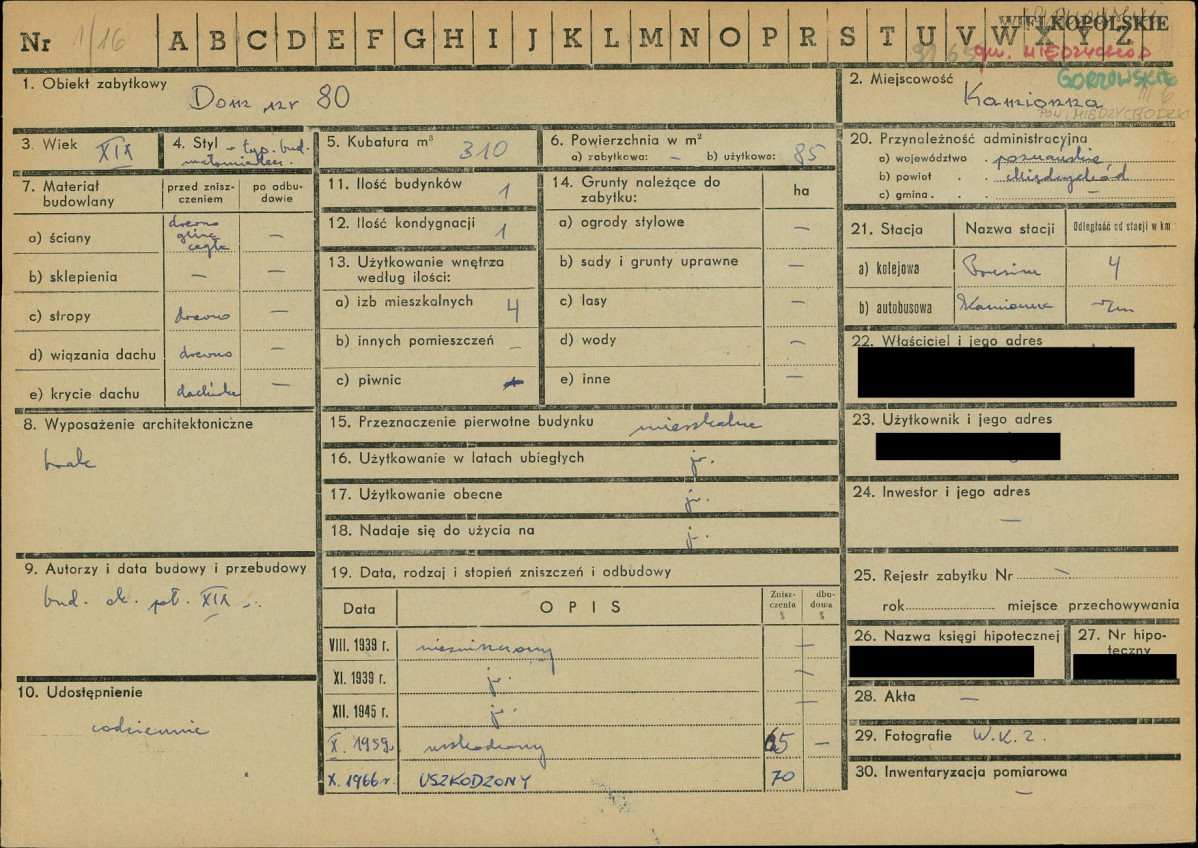 Nr 1/16 A B C D E F G H I J K L M N O P R S T U V W X Y Z
WIELKOPOLSKIE
gm. MIĘDZYCHÓD
GORZOWSKIE
POW. MIĘDZYCHODZKI
1. Obiekt zabytkowy Dom nr 80
2. Miejscowość Kamionna
3. Wiek XIX
4. Styl - typ. bud.
małomiasteczk.
5. Kubatura m³ 310
6. Powierzchnia w m²
a) zabytkowa: — b) użytkowa: 85
7. Materiał budowlany
przed zniszczeniem
po odbudowie
a) ściany drewno glina cegła —
b) sklepienia — —
c) stropy drewno —
d) wiązania dachu drewno —
e) krycie dachu dachówka —
8. Wyposażenie architektoniczne
brak
9. Autorzy i data budowy i przebudowy
bud. ok. poł. XIX w.
10. Udostępnienie
codziennie
11. Ilość budynków 1
12. Ilość kondygnacji 1
13. Użytkowanie wnętrza
według ilości:
a) izb mieszkalnych 4
b) innych pomieszczeń —
c) piwnic
14. Grunty należące do
zabytku:
ha
a) ogrody stylowe —
b) sady i grunty uprawne —
c) lasy —
d) wody —
e) inne —
15. Przeznaczenie pierwotne budynku mieszkalne
16. Użytkowanie w latach ubiegłych j.
17. Użytkowanie obecne j.
18. Nadaje się do użycia na j.
19. Data, rodzaj i stopień zniszczeń i odbudowy
Data OPIS Zniszczenia % dbudowa %
VIII. 1939 r. niezniszczony —
XI. 1939 r. j. —
XII. 1945 r. j. —
X. 1959. uszkodzony 65 —
X. 1966 r. USZKODZONY 70
20. Przynależność administracyjna
a) województwo . poznańskie
b) powiat . . Międzychód
c) gmina . . . —
21. Stacja Nazwa stacji Odległość od stacji w km
a) kolejowa 4
b) autobusowa Kamionna
22. Właściciel i jego adres
23. Użytkownik i jego adres
24. Inwestor i jego adres
—
25. Rejestr zabytku Nr —
rok miejsce przechowywania
26. Nazwa księgi hipotecznej
27. Nr hipoteczny
28. Akta —
29. Fotografie W.K.Z.
30. Inwentaryzacja pomiarowa
—